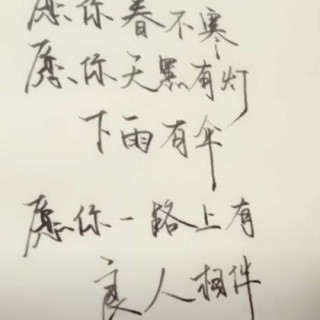 愿你春不寒
愿你天黑有灯
下雨有伞
愿你一路上有
良人相伴